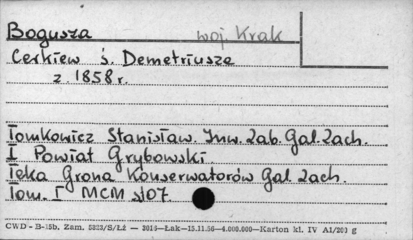 Bogusza woj. Krak
Cerkiew ś. Demetriusza
z. 1858 r.
Tomkowicz Stanisław. Inw. Zab. Gal. Zach.
I Powiat Grybowski.
Teka Grona Konserwatorów Gal. Zach.
Tom. I MCM 107.
CWD - B-15b. Zam. 5323/S/Lż — 3016—Łak—15.11.56—4.000.000—Karton kl. IV A1/200 g